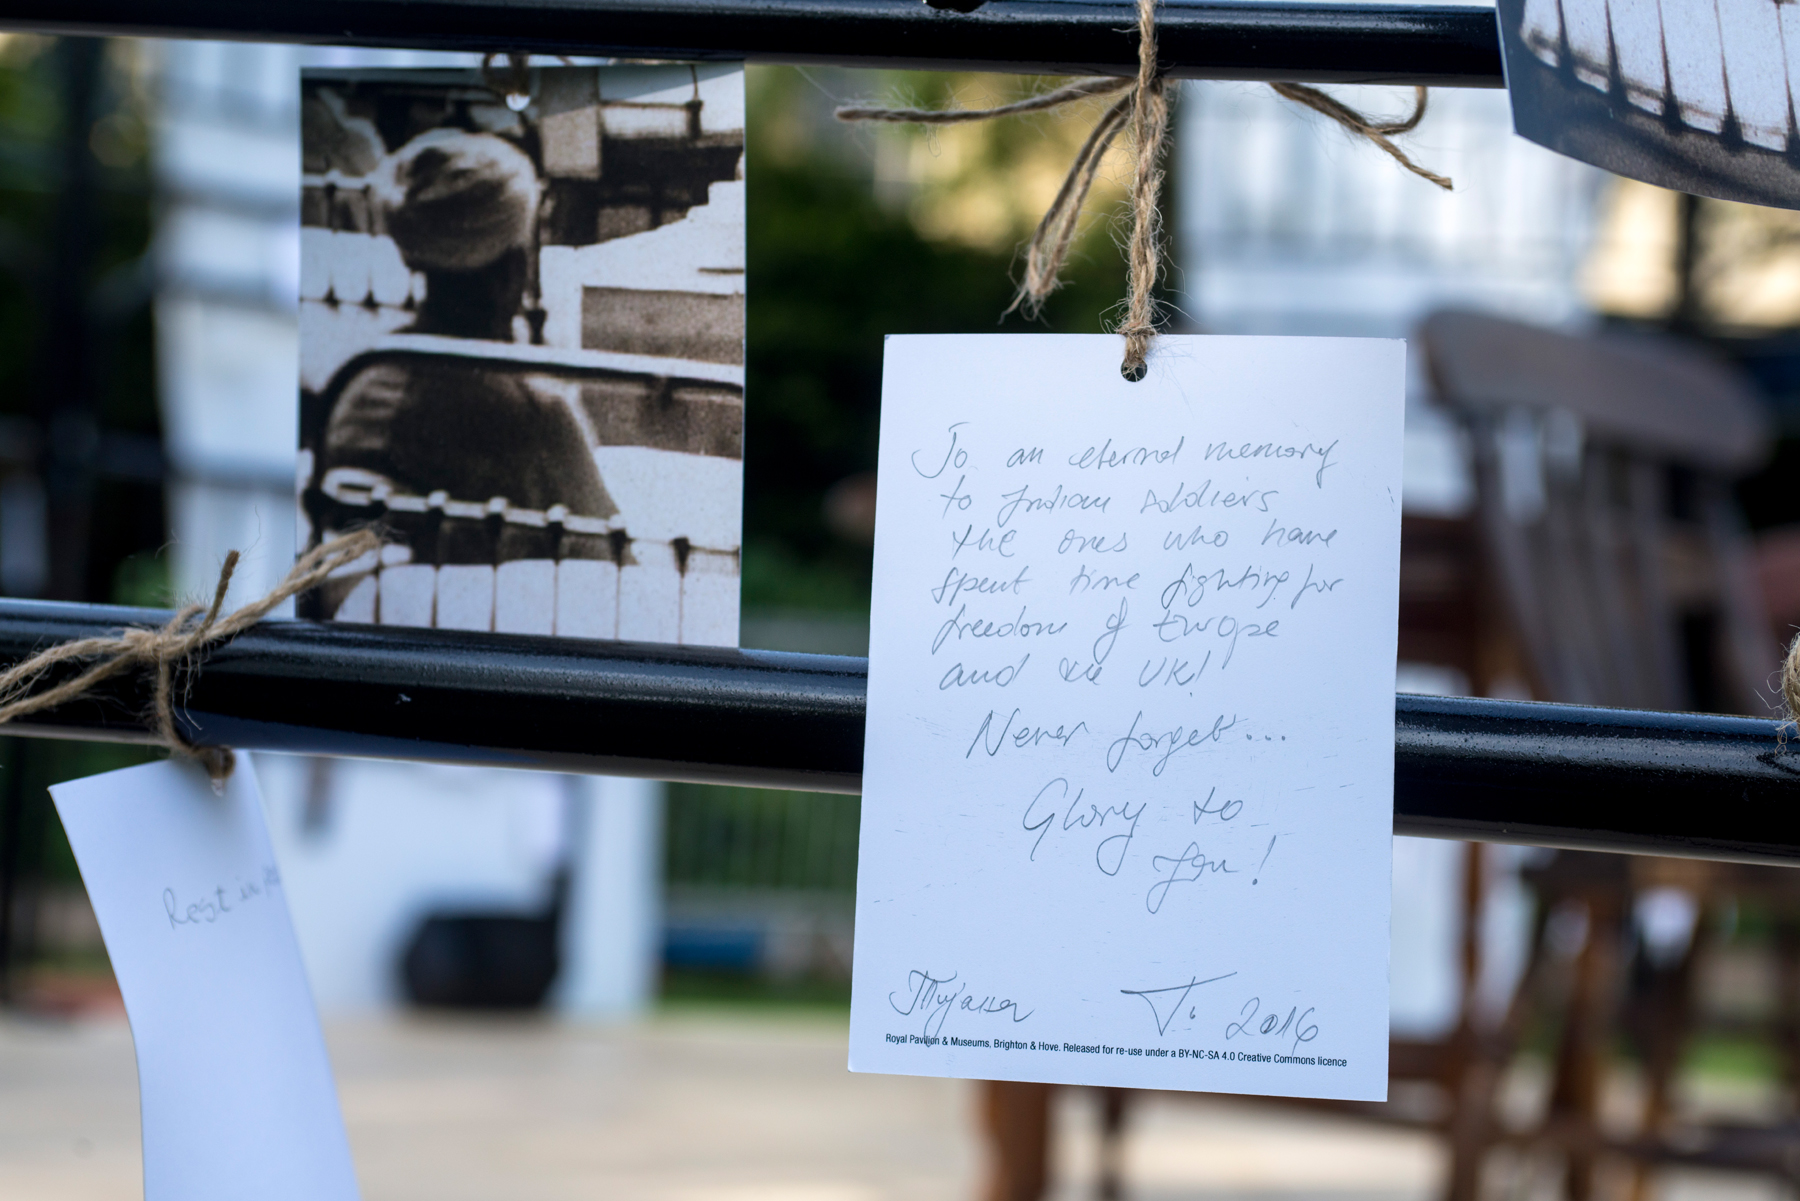 To an eternal memory
to Indian soldiers
the ones who have
spent time fighting for
freedom of Europe
and the UK!
Never forget...
Glory to
you!
2016
Royal Pavilion & Museums, Brighton & Hove. Released for re-use under a BY-NC-SA 4.0 Creative Commons licence
Rest in